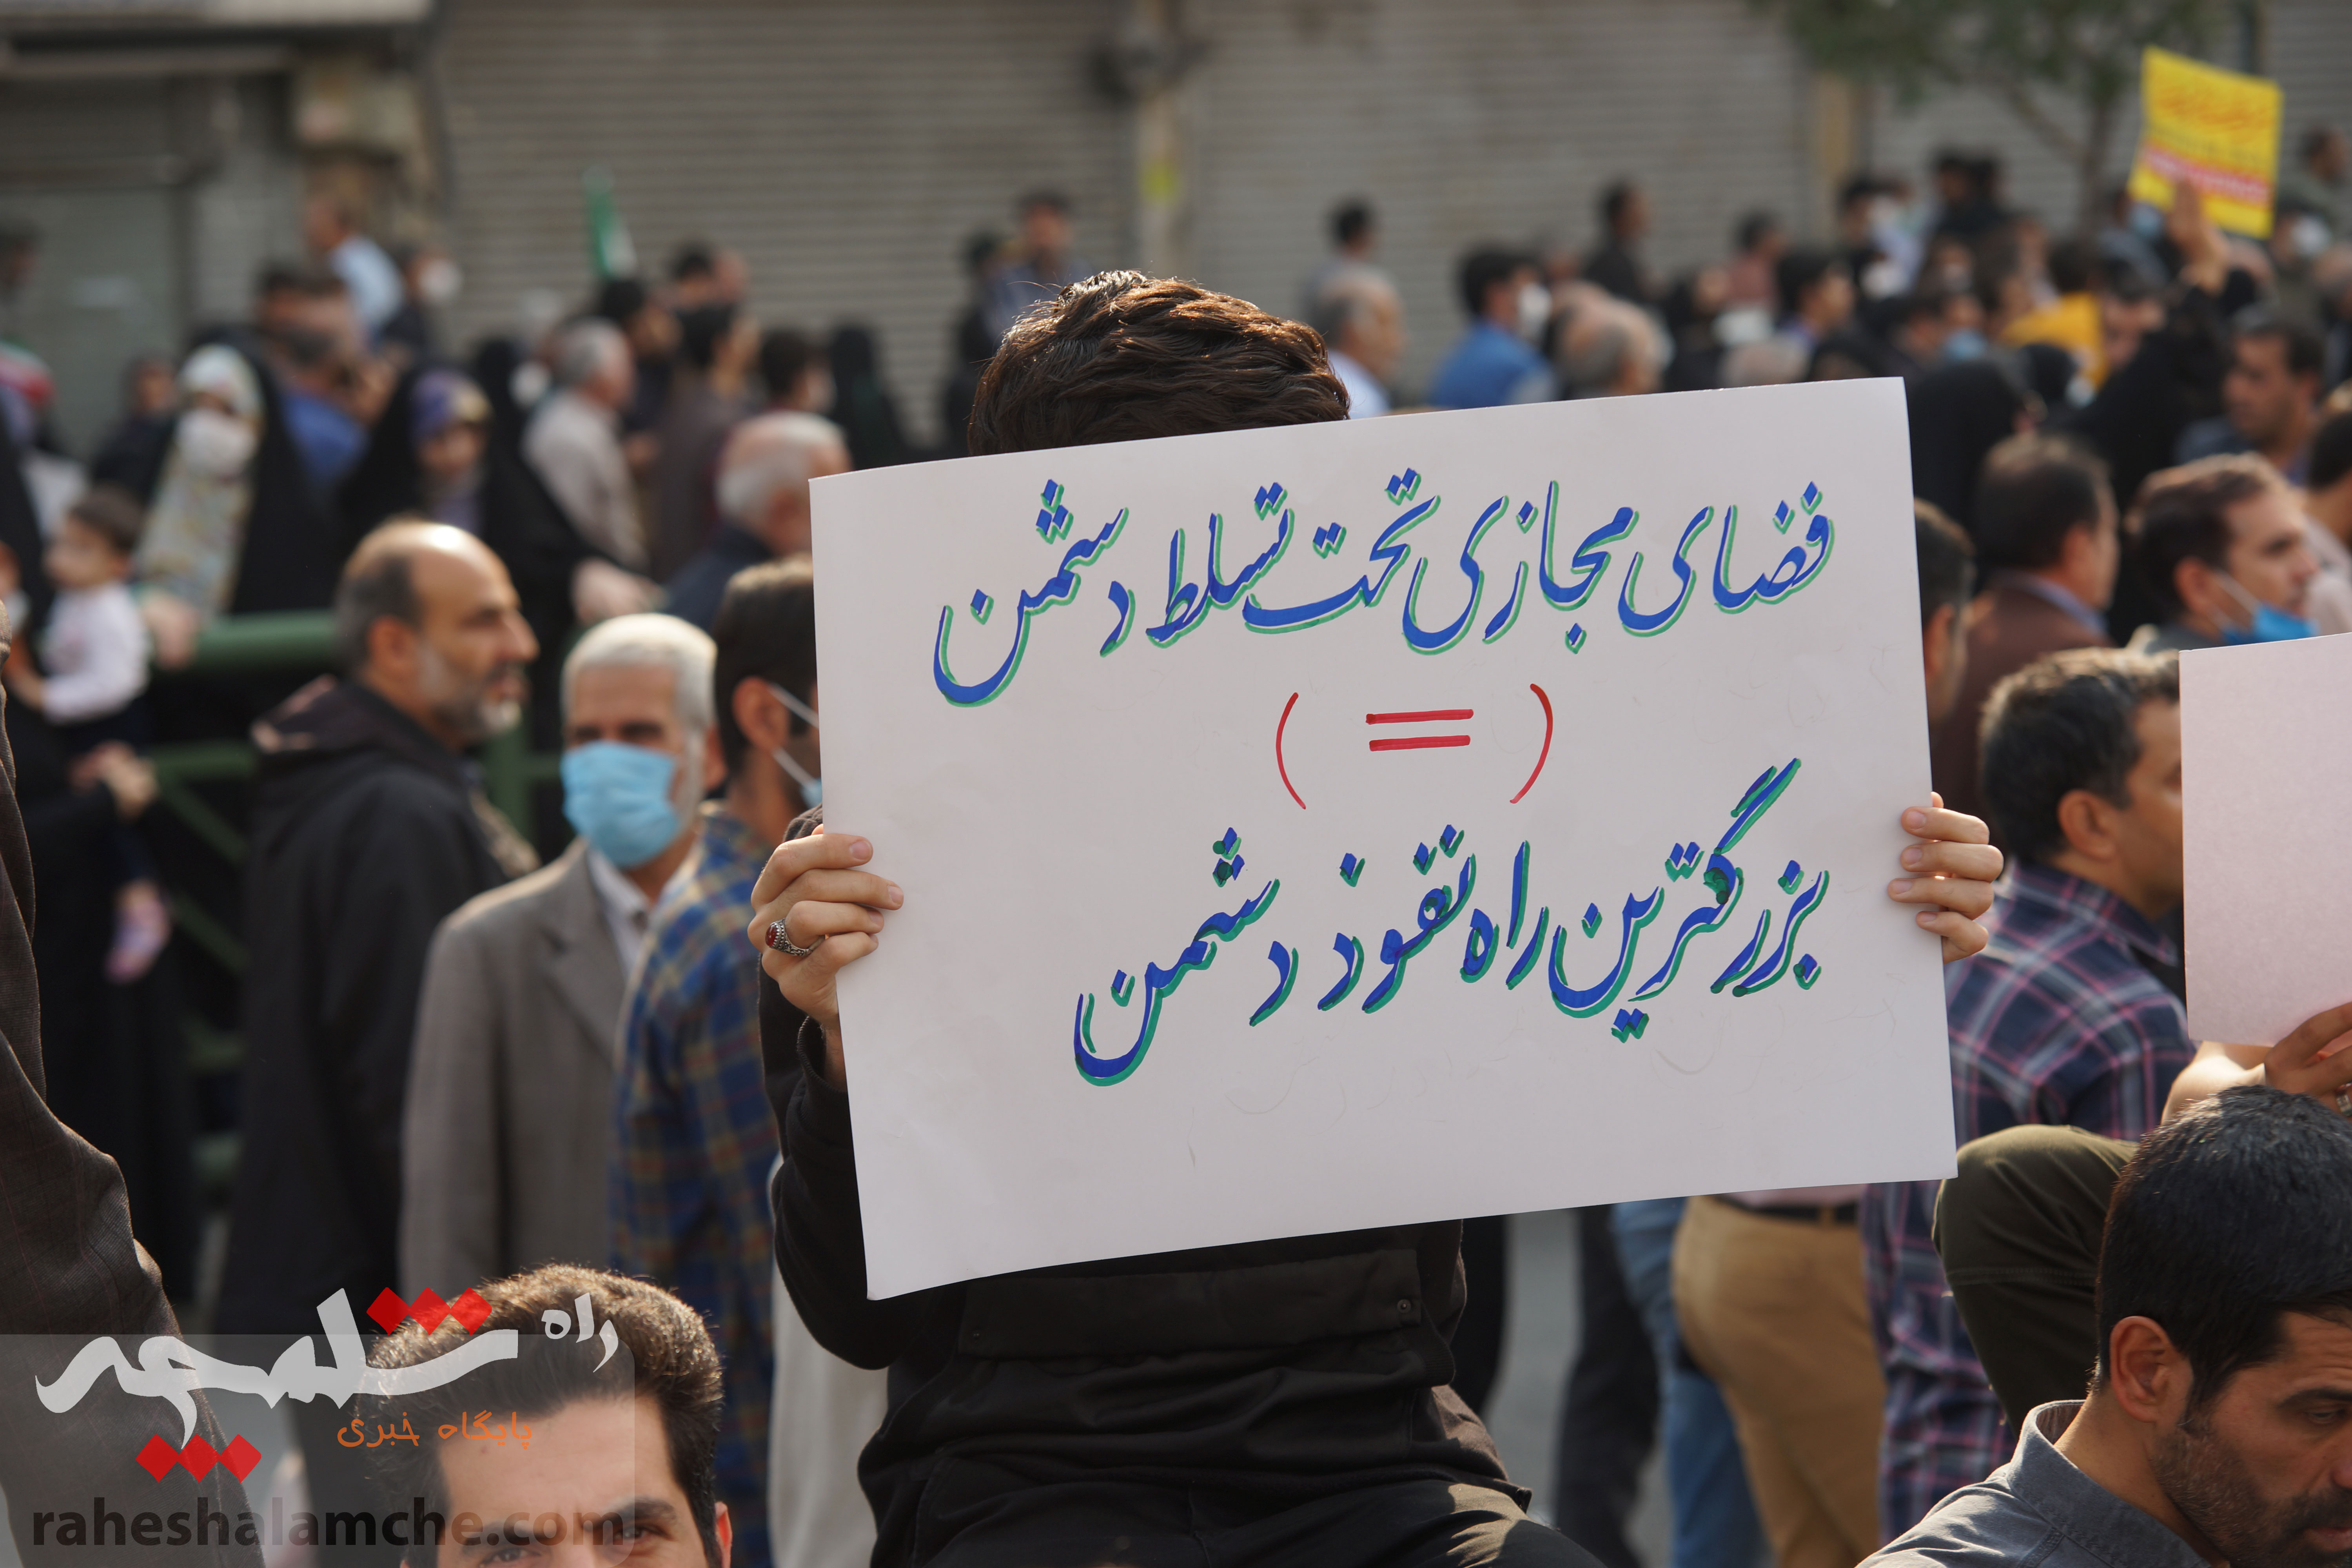 فضای مجازی تحت تسلط دشمن
( = )
بزرگترین راه نفوذ دشمن
راه شلمچه
پایگاه خبری
raheshalamche.com